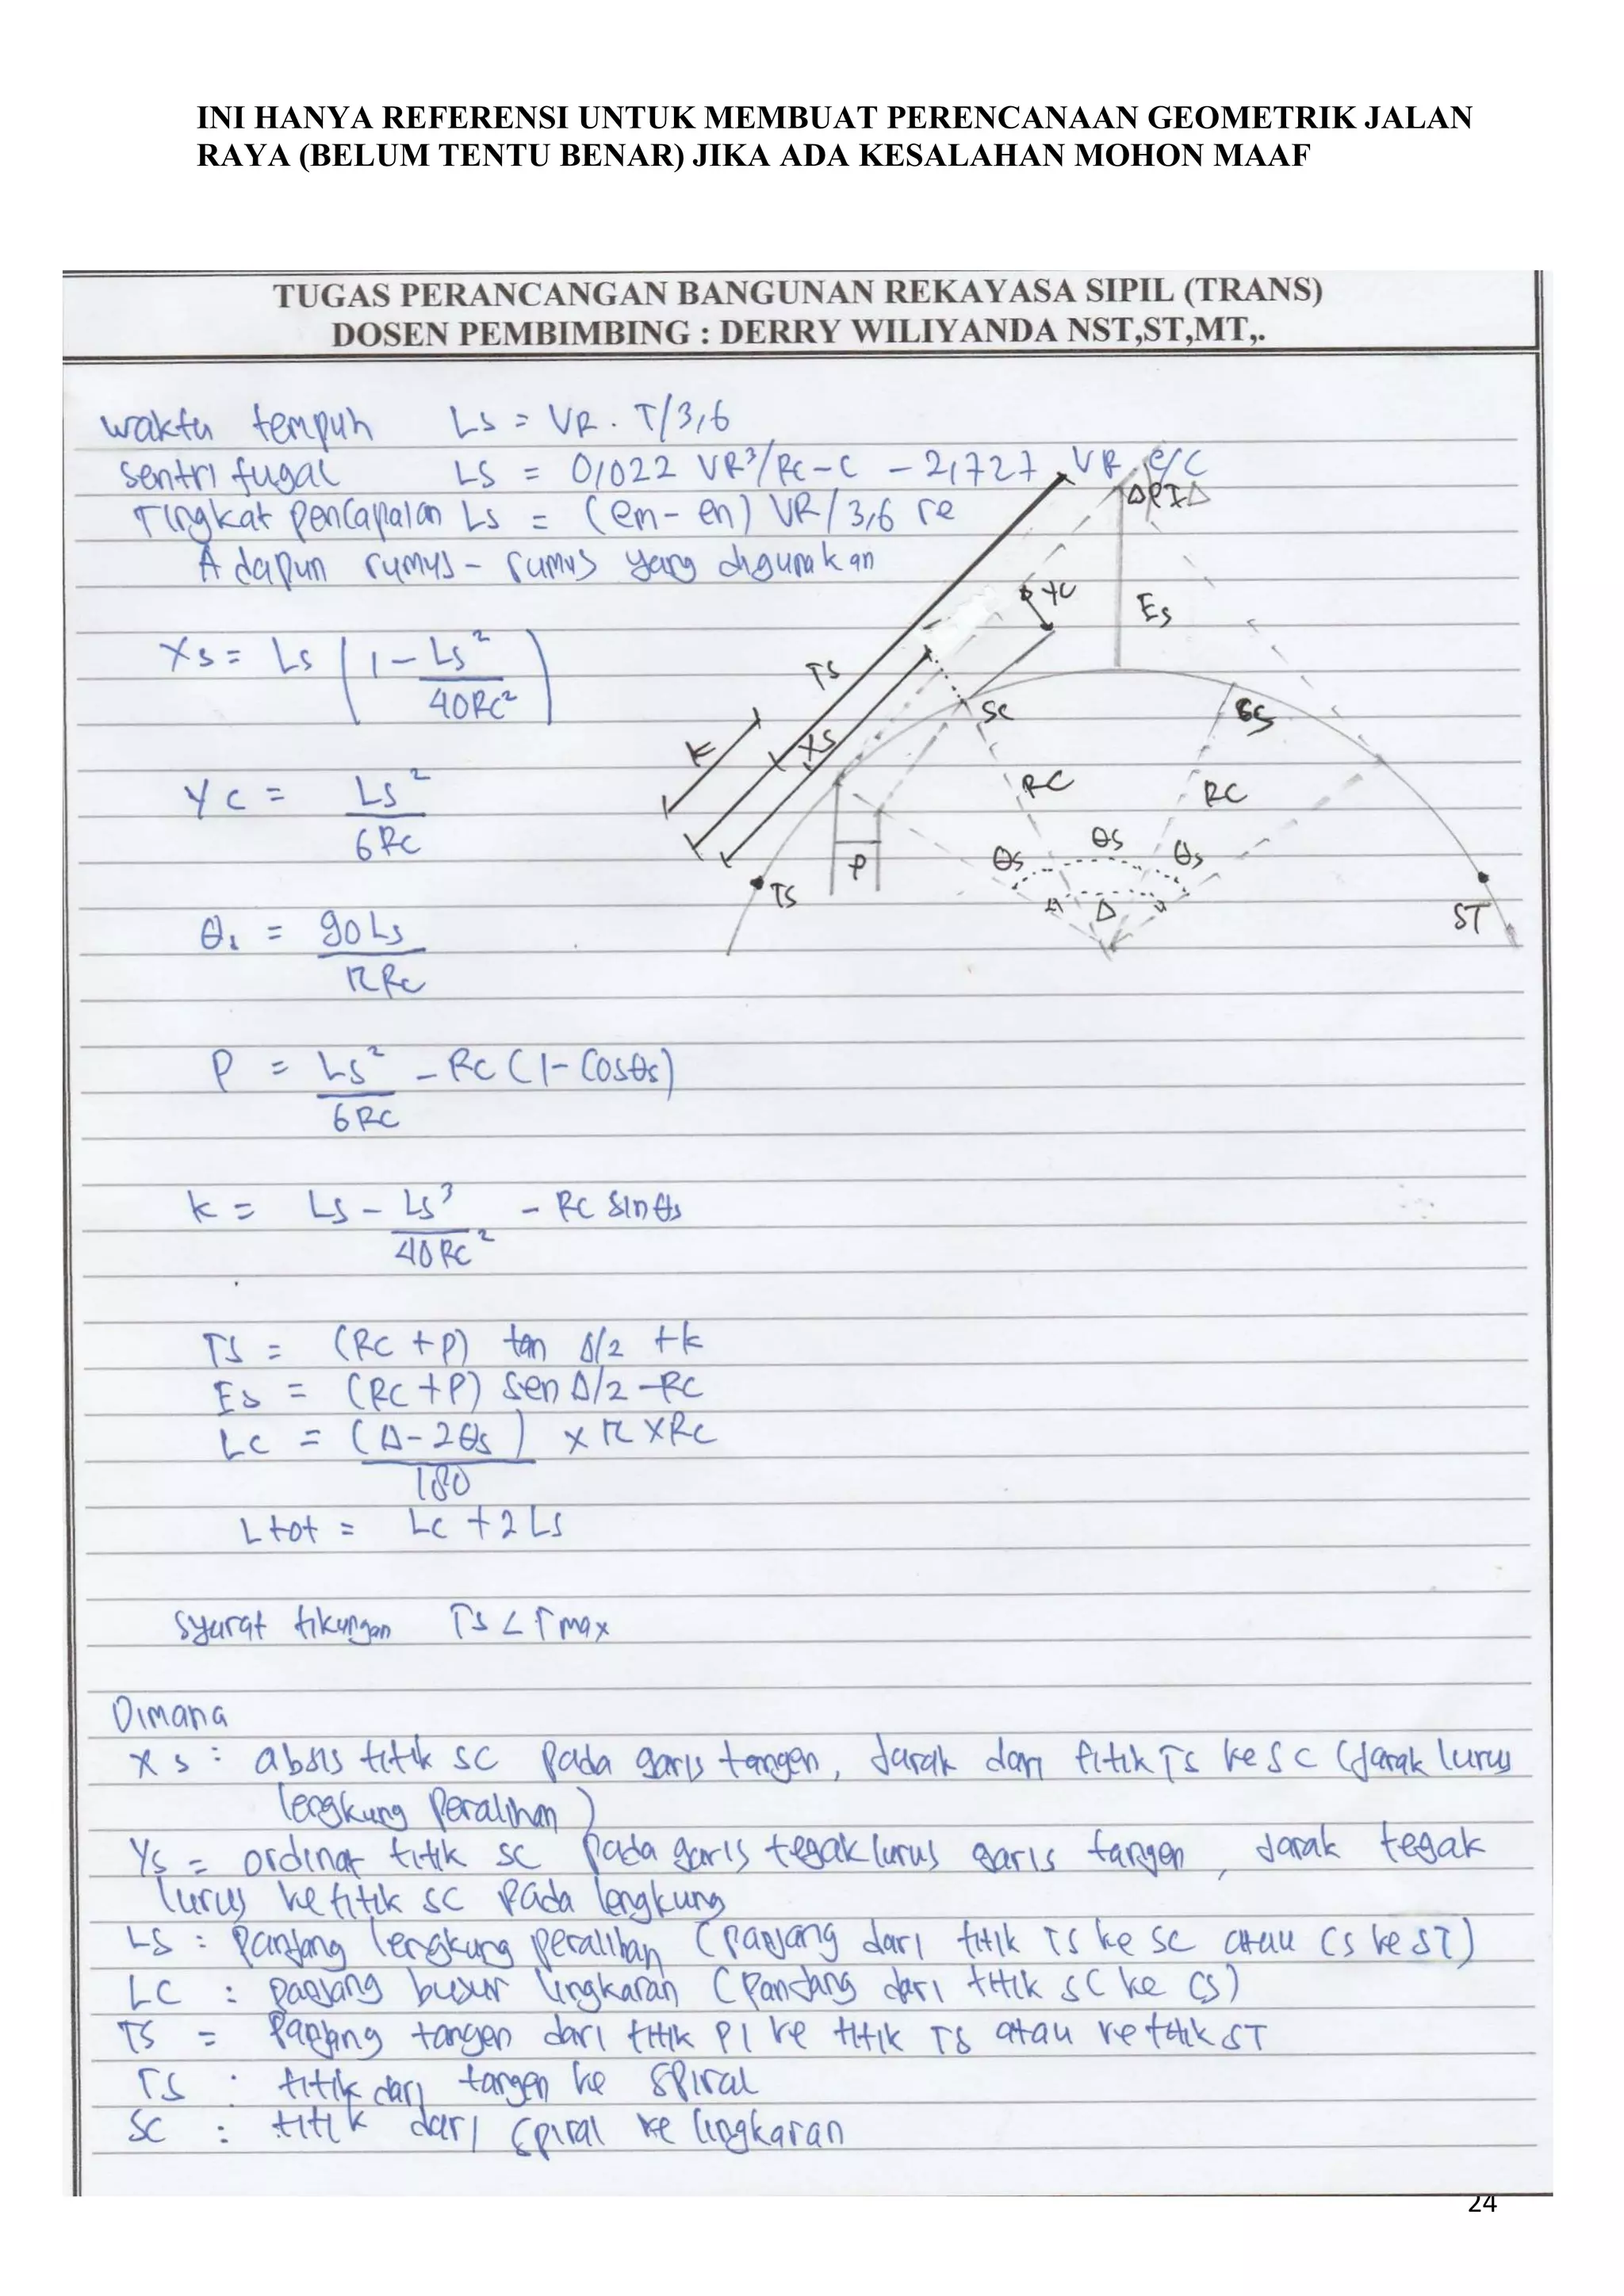 INI HANYA REFERENSI UNTUK MEMBUAT PERENCANAAN GEOMETRIK JALAN
RAYA (BELUM TENTU BENAR) JIKA ADA KESALAHAN MOHON MAAF
TUGAS PERANCANGAN BANGUNAN REKAYASA SIPIL (TRANS)
DOSEN PEMBIMBING : DERRY WILIYANDA NST,ST,MT,.
waktu tempuh Ls = VR . T/3,6
sentrifugal LS = 0,022 VR³/RC-C - 2,727 VR e/C
Tingkat pencapaian Ls = (em - en) VR/3,6 re
Adapun rumus - rumus yang digunakan
Xs = Ls (1 - Ls²/40Rc²)
Yc = Ls²/6Rc
θs = 90Ls/πRc
P = Ls²/6RC - RC (1- Cosθs)
k = Ls - Ls³/40RC² - RC sinθs
TS = (RC + P) tan Δ/2 + k
Es = (RC + P) sen Δ/2 - RC
LC = (Δ - 2θs)/180 × π × Rc
L tot = Lc + 2 Ls
Syarat tikungan Ts < Tmax
ΔPIΔ
YC
Es
TS
SC
K
XS
RC
RC
θs
θs
θs
P
TS
Δ
ST
Dimana
Xs : absis titik SC pada garis tangen, Jarak dari titik TS ke SC (Jarak lurus
lengkung Peralihan)
Ys = ordinat titik SC pada garis tegak lurus garis tangen, Jarak tegak
lurus ke titik SC pada lengkung
LS : Panjang lengkung peralihan (panjang dari titik TS ke SC atau CS ke ST)
LC : panjang busur lingkaran (Panjang dari titik SC ke CS)
TS = Panjang tangen dari titik PI ke titik TS atau ke titik ST
TS : titik dari tangen ke spiral
SC : titik dari spiral ke lingkaran
24